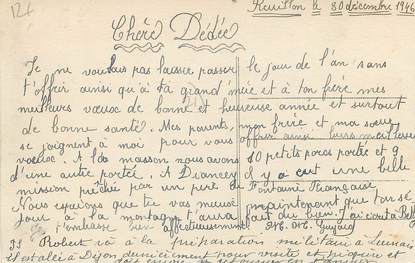 124
Reuillon le 30 décembre 1946
Chère Dédée
Je ne voulais pas laisser passer le jour de l'an sans
t'offrir ainsi qu'à ta grand mère et à ton frère mes
meilleurs vœux de bonne et heureuse année et surtout
de bonne santé. Mes parents, mon frère et ma sœur
se joignent à moi pour vous offrir aussi leurs meilleurs
vœux. A la maison nous avons 10 petits porcs portée et 9
d'une autre portée. A Diancey il y a eut une belle
mission prêchée par un père de Fontaine Française
Nous espérons que tu vas mieux maintenant que ton sé
jour à la montagne t'aura fait du bien.
t'embrasse bien affectueusement.
Robert va à la préparation militaire à
il est allé à Dijon dernièrement pour visite et